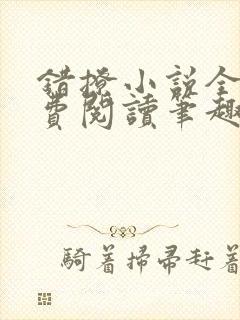 錯撩小説全
費閱讀筆趣
騎着掃帚赶着